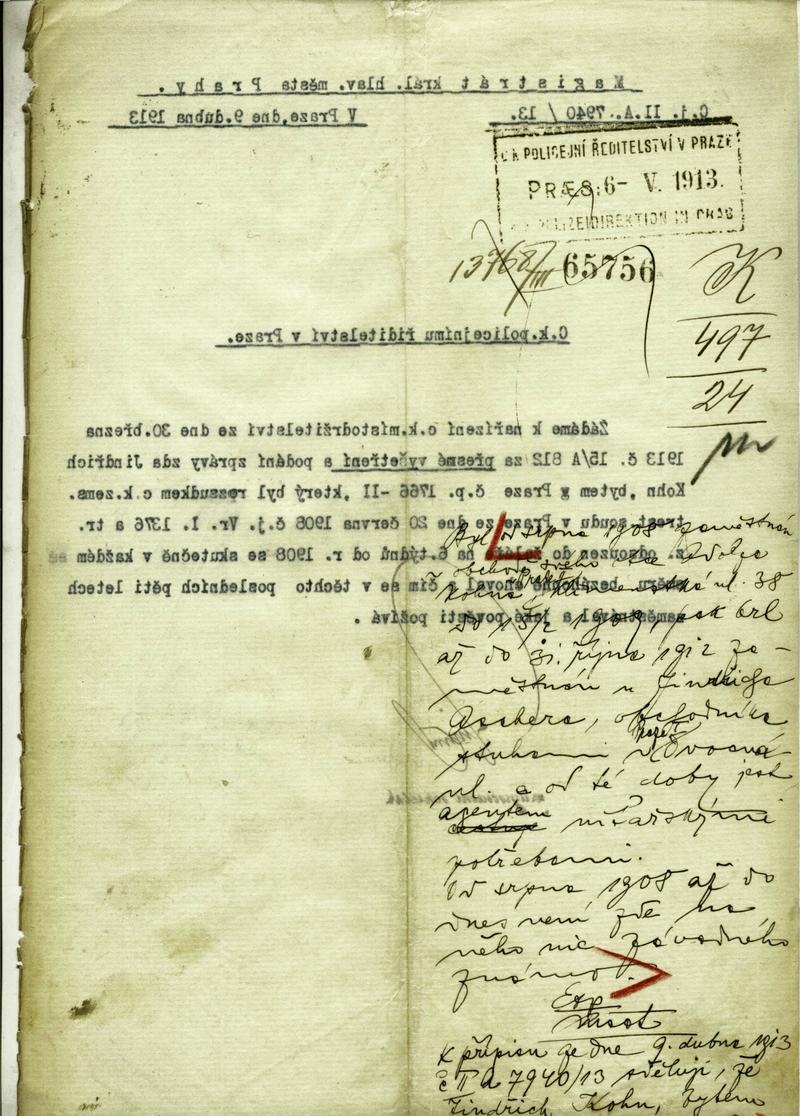 Magistrát král. hlav. města Prahy.
Č.j. II.A. 7940 / 13.
V Praze, dne 9. dubna 1913
C.K. POLICEJNÍ ŘEDITELSTVÍ V PRAZE
PRÆS: 6- V. 1913.
K.K. POLIZEIDIREKTION IN PRAG
13768/III 65756
K
497
24
C.k. policejnímu řiditelství v Praze.
Žádáme k nařízení c.k. místodržitelství ze dne 30. března
1913 č. 15/A 812 za přesné vyšetření a podání zprávy zda Jindřich
Kohn, bytem v Praze č.p. 1766 -II, který byl rozsudkem c.k. zems.
trest. soudu v Praze ze dne 20 června 1908 č.j. Vr. I. 1376 a tr.
z. odsouzen do žaláře na 6. týdnů od r. 1908 se skutečně v každém
směru bezúhonně choval a čím se v těchto posledních pěti letech
zaměstnával a jaké pověsti požívá.
Byl od srpna 1908 zaměstnán
v obchodě svého otce Adolfa
Kohna, ul. 38
do 15/2 1909, pak byl
až do 31. října 1912 za-
městnán u Jindřicha
Aschera, obchodníka
stuhami v
ul. a od té doby jest
agentem
potřebami.
Od srpna 1908 až do
dnes není zde na
něho nic závadného
známo.
Exp
K přípisu ze dne 9. dubna 1913
č II A 7940/13 sděluji, že
Jindřich Kohn, bytem